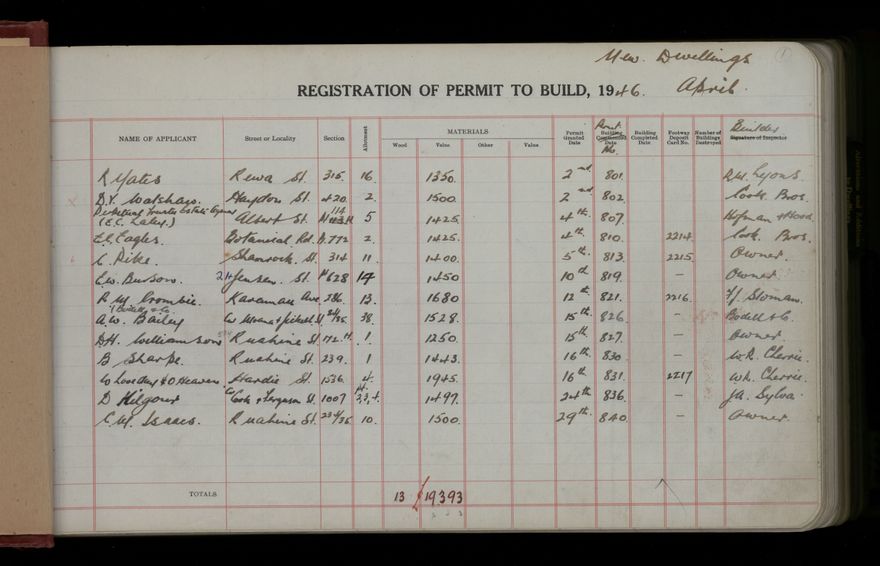 New Dwellings
REGISTRATION OF PERMIT TO BUILD, 1946. April.
NAME OF APPLICANT Street or Locality Section Allotment MATERIALS Wood Value Other Value Permit Granted Date Permit Building Commenced Date No. Building Completed Date Footway Deposit Card No. Number of Buildings Destroyed Builder Signature of Inspector
R Yates Rewa St. 315. 16. 1350. 2nd 801.
D.V. Watshaw. Haydon St. 420. 2. 1500. 2nd 802. Cook Bros.
Perpetual Trustees Estate Agency
(E.C. Laley.) Albert St. 5 1425. 4th 807. Hofman & Hood.
E.C. Eagles. Botanical Rd. 772 2. 1425. 4th 810. 2214. Cook Bros.
C. Pike. Shamrock St. 314 11. 1400. 5th 813. 2215. Owner.
E.W. Burson. 21 Jensen St. 628 14 1450 10th 819. – Owner.
R. M. Crombie. Karamau Ave. 286. 13. 1680 12th 821. 2216. F.J. Stoman.
(Bodell & Co.
A.W. Bailey St. 38. 1528. 15th 826. – Bodell & Co.
D.H. Williamson Ruahine St. 172 1. 1250. 15th 827. – Owner.
B Sharpe. Ruahine St. 239. 1 1443. 16th 830. – W.R. Cherrie.
Hardie St. 1536. 4. 1945. 16th 831. 2217 W.R. Cherrie.
D Kilgour Cor Cook & Ferguson St. 1007 3, 4. 1497. 24th 836. – J.A. Sylva.
C. M. Isaacs. Ruahine St. 234/36 10. 1500. 29th 840. – Owner.
TOTALS 13 £19393